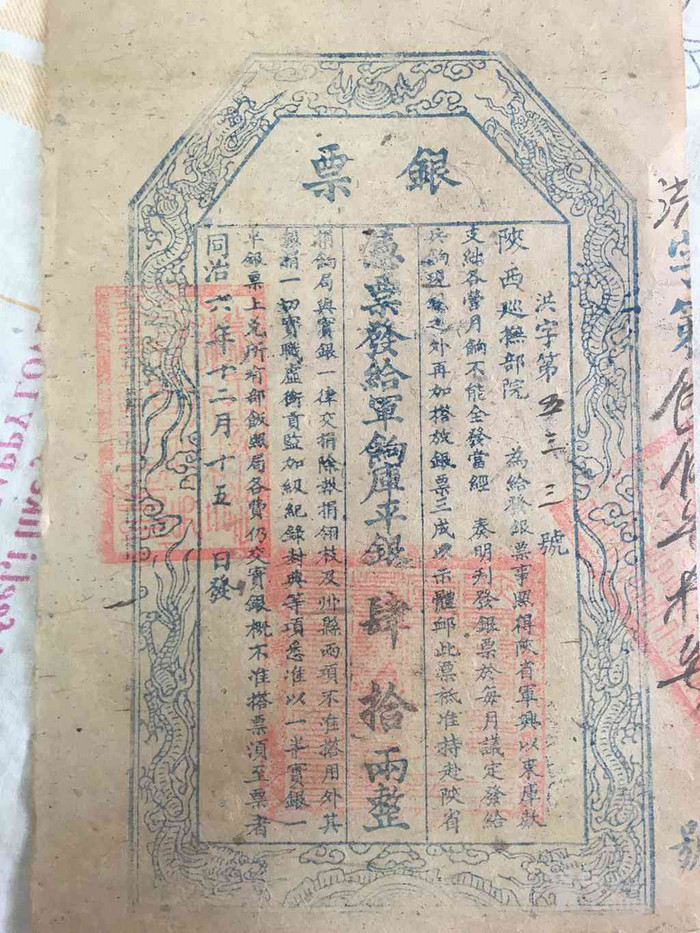 銀票
洪字第五三三號
陝西巡撫部院 為給發銀票事照得陝省軍興以來庫款
支絀各營月餉不能全發當經 奏明刋發銀票於每月議定發給
兵餉現銀之外再加搭放銀票三成以示體卹此票祇准持赴陝省
憑票發給軍餉庫平銀肆拾兩整
捐餉局與實銀一律交捐除救捐翎枝及州縣兩項不准搭用外其
報捐一切實職虛銜貢監加級紀錄封典等項悉准以一半實銀一
半銀票上兌所有部飯照局各費仍交實銀概不准搭票須至票者
同治六年十二月十五日發
字第
號